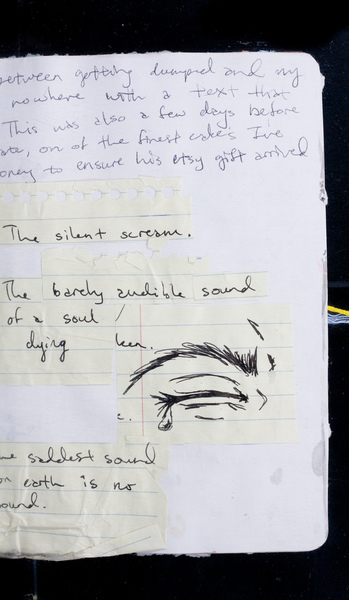 between getting dumped and my
nowhere with a text that
This was also a few days before
ate, on of the finest cakes I've
oney to ensure his etsy gift arrived
The silent scream.
The barely audible sound
of a soul /
dying
ken.
e.
e saddest sound
on earth is no
ound.